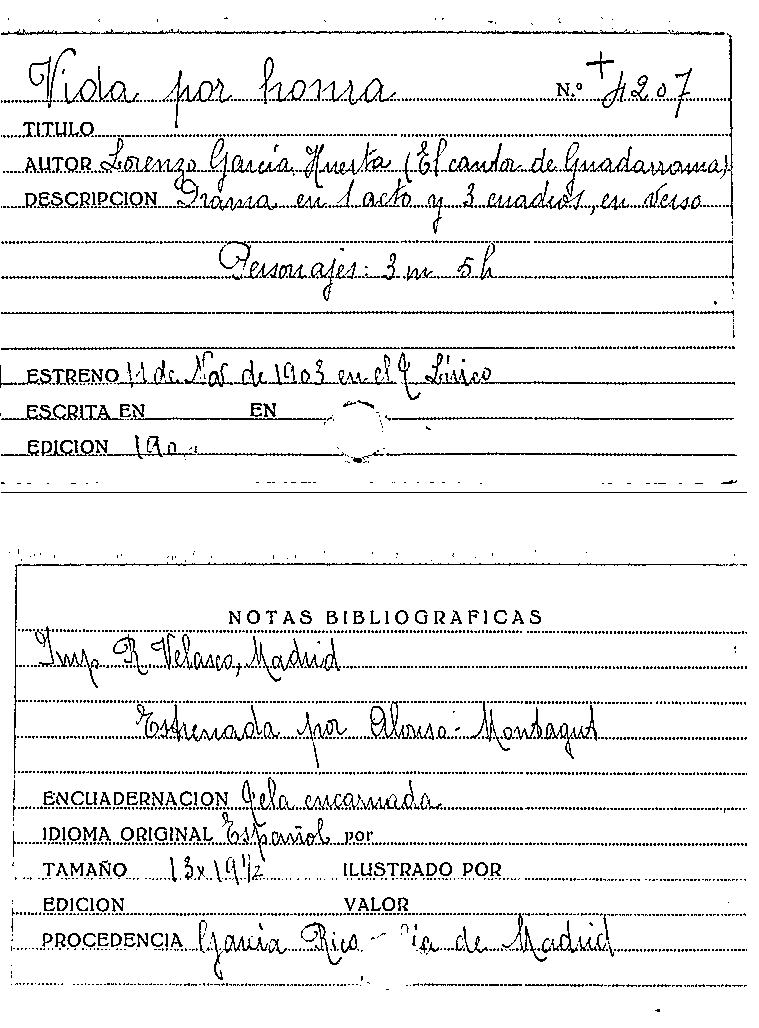 Vida por honra N.º + 4207
TITULO
AUTOR Lorenzo García Huerta (El cantor de Guadarrama)
DESCRIPCION Drama en 1 acto y 3 cuadros, en verso
Personajes: 3 m 5 h
ESTRENO 11 de Nov. de 1903 en el T. Lírico
ESCRITA EN EN
EDICION 190
NOTAS BIBLIOGRAFICAS
Imp. R. Velasco, Madrid
Estrenada por Alonso-Montagut
ENCUADERNACION Tela encarnada
IDIOMA ORIGINAL Español por
TAMAÑO 13x19½ ILUSTRADO POR
EDICION VALOR
PROCEDENCIA García Rico - de Madrid